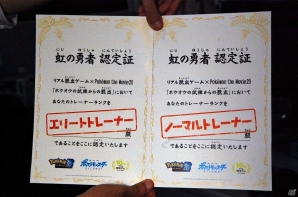 虹の勇者 認定証
リアル脱出ゲーム×Pokémon the Movie20
『ホウオウの試練からの脱出』において
あなたのトレーナーランクを
エリートトレーナー級
であることをここに認定いたします
虹の勇者 認定証
リアル脱出ゲーム×Pokémon the Movie20
『ホウオウの試練からの脱出』において
あなたのトレーナーランクを
ノーマルトレーナー級
であることをここに認定いたします